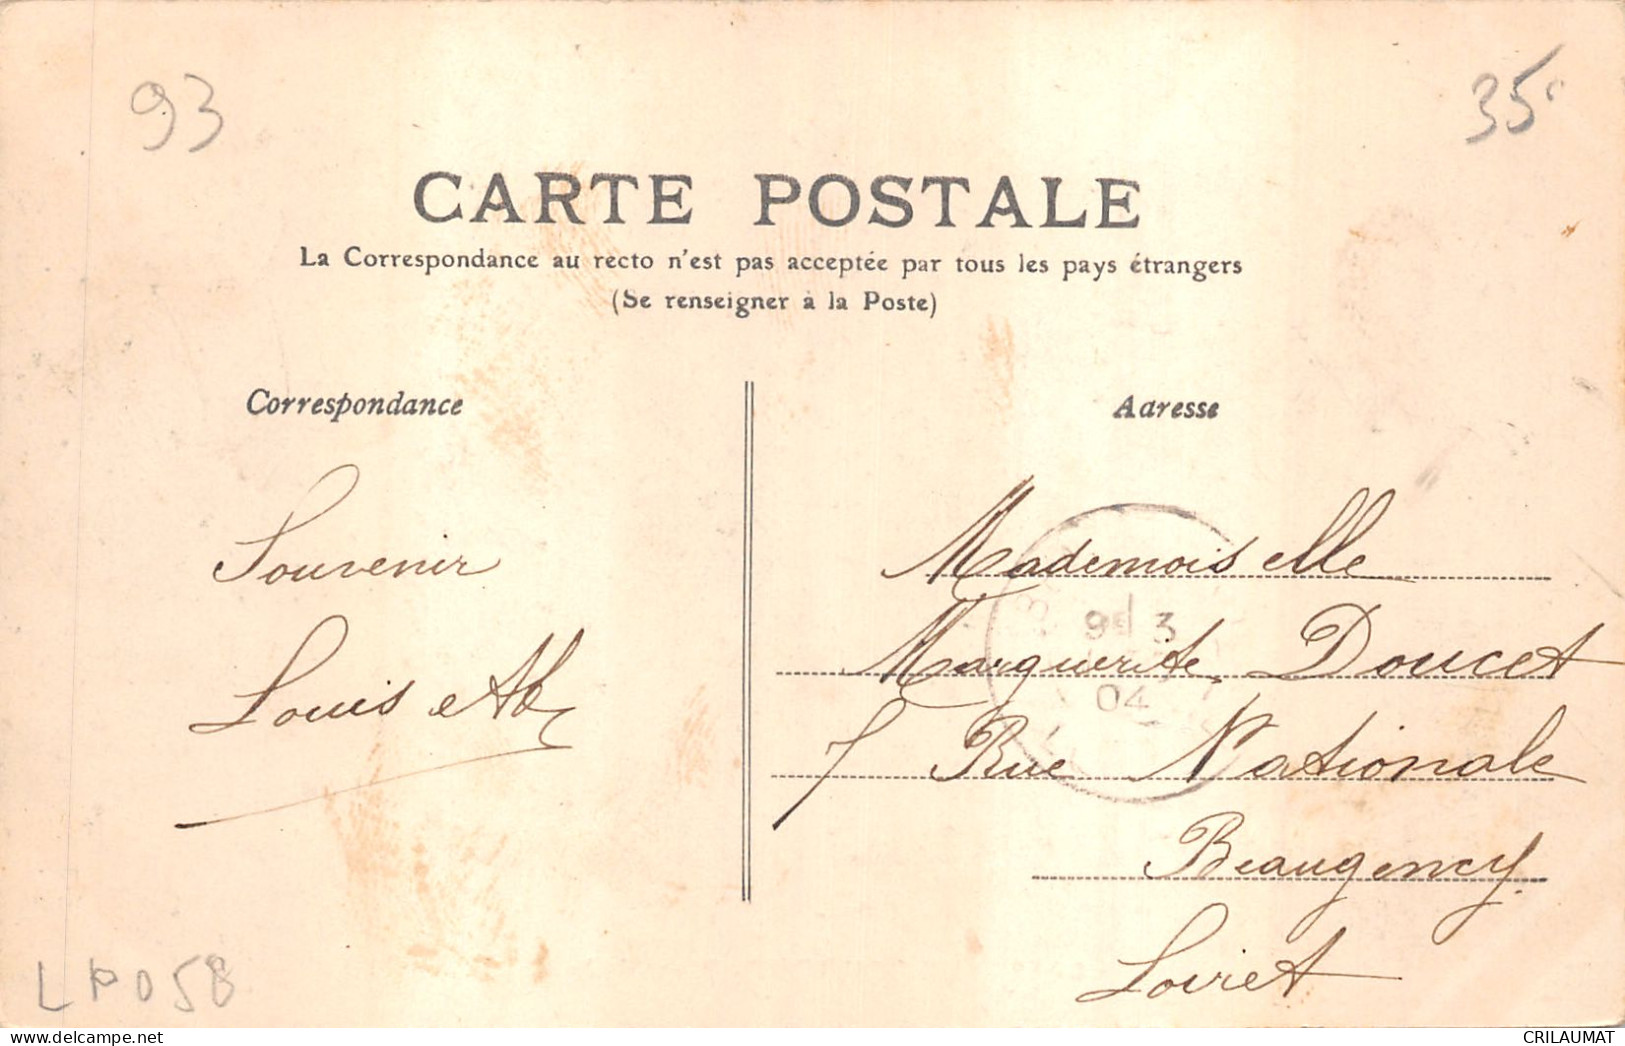 93
35c
CARTE POSTALE
La Correspondance au recto n'est pas acceptée par tous les pays étrangers
(Se renseigner à la Poste)
Correspondance
Adresse
Souvenir
Louis
Mademoiselle
Marguerite Doucet
7 Rue Nationale
Beaugency
Loiret
9E 3
04
LP058
CRILAUMAT